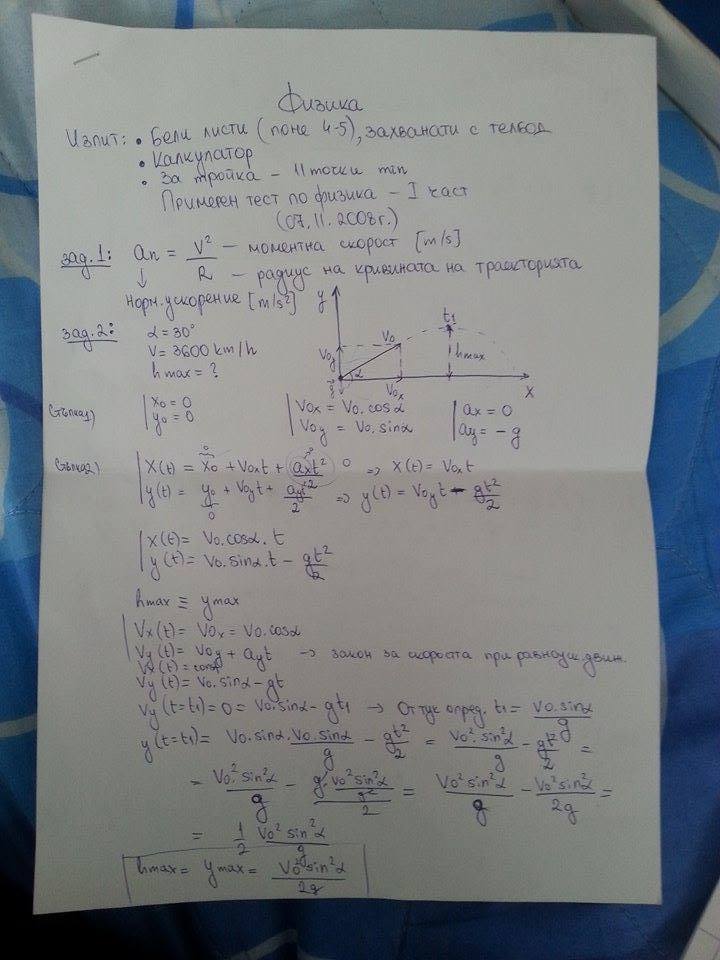 Физика
Изпит: • Бели листи (поне 4-5), захванати с телбод
• Калкулатор
• За тройка - 11 точки min
Примерен тест по физика - I част
(07.11.2008г.)
зад.1: an = V²/R
V - моментна скорост [m/s]
R - радиус на кривината на траекторията
↓
норм. ускорение [m/s²]
y t1
зад.2: α = 30°
V = 3600 km/h
hmax = ?
V0y V0 hmax
g α V0x X
стъпка1) | x0 = 0 | V0x = V0.cosα | ax = 0
| y0 = 0 | V0y = V0.sinα | ay = -g
стъпка2) | X(t) = x0 + V0xt + axt² 0 => X(t) = V0xt
| y(t) = y0 + V0yt + ayt²/2 => y(t) = V0yt - gt²/2
0
| X(t) = V0.cosα.t
| y(t) = V0.sinα.t - gt²/2
hmax ≡ ymax
| Vx(t) = V0x = V0.cosα
| Vy(t) = V0y + ayt -> закон за скоростта при равноуск. движ.
Vx(t) = const
Vy(t) = V0.sinα - gt
Vy(t=t1) = 0 = V0.sinα - gt1 -> От тук опред. t1 = V0.sinα/g
y(t=t1) = V0.sinα.V0.sinα/g - gt²/2 = V0².sin²α/g - gt²/2 =
= V0².sin²α/g - g.V0²sin²α/g²/2 = V0²sin²α/g - V0²sin²α/2g =
= 1/2 V0²sin²α/g
hmax = ymax = V0²sin²α/2g